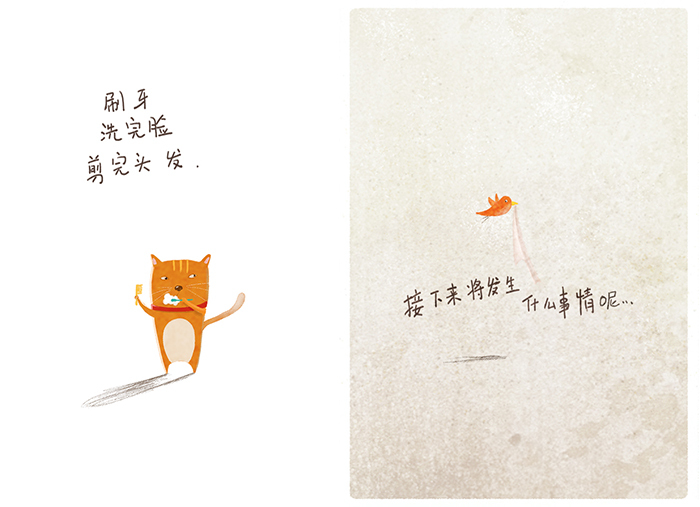 刷牙
洗完脸
剪完头发.
接下来将发生
什么事情呢...